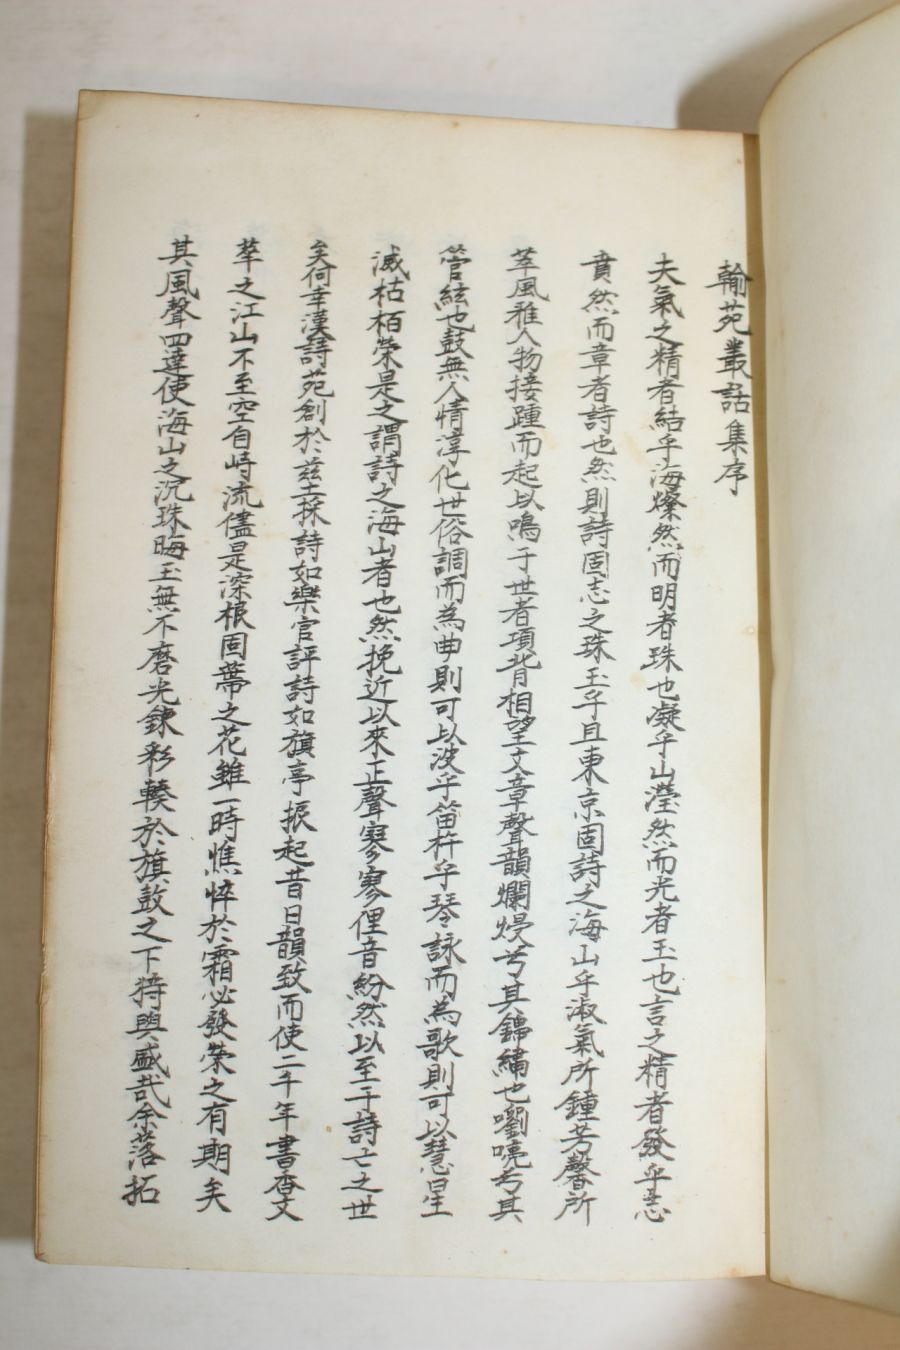 翰苑叢話集序
夫氣之精者結乎海燦然而明者珠也凝乎山瀅然而光者玉也言之精者發乎志
賁然而章者詩也然則詩固志之珠玉乎且東京固詩之海山乎淑氣所鍾芳馨所
萃風雅人物接踵而起以鳴于世者項背相望文章聲韻爛熳兮其錦繡也嚠喨兮其
管絃也鼓無人情淳化世俗調而為曲則可以波乎笛杵乎琴詠而為歌則可以慧星
滅枯栢榮是之謂詩之海山者也然挽近以來正聲寥寥俚音紛然以至于詩亡之世
矣何幸漢詩苑創於玆土採詩如樂官評詩如旗亭振起昔日韻致而使二千年書香文
萃之江山不至空自峙流儘是深根固蔕之花雖一時憔悴於霜必發榮之有期矣
其風聲四達使海山之沉珠晦玉無不磨光鍊彩輳於旗鼓之下猗與盛哉余落拓